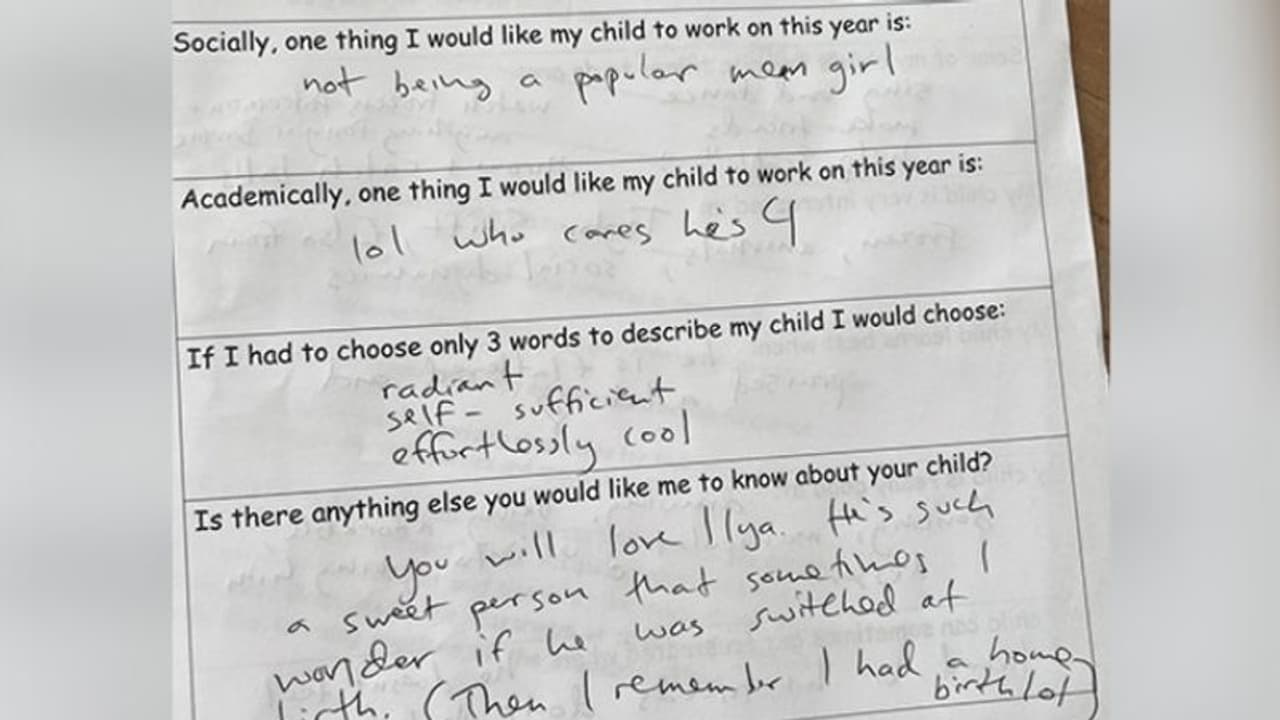 Socially, one thing I would like my child to work on this year is:
not being a popular mean girl
Academically, one thing I would like my child to work on this year is:
lol who cares he's 4
If I had to choose only 3 words to describe my child I would choose:
radiant
self-sufficient
effortlessly cool
Is there anything else you would like me to know about your child?
You will love Ilya. He's such
a sweet person that sometimes I
wonder if he was switched at
birth. (Then I remember I had a home
birth lol)